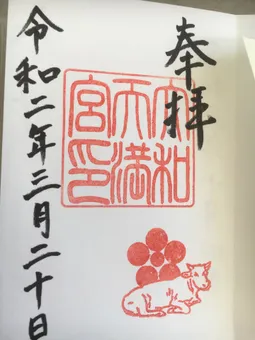 奉拝
和
天満
宮印
令和二年三月二十日